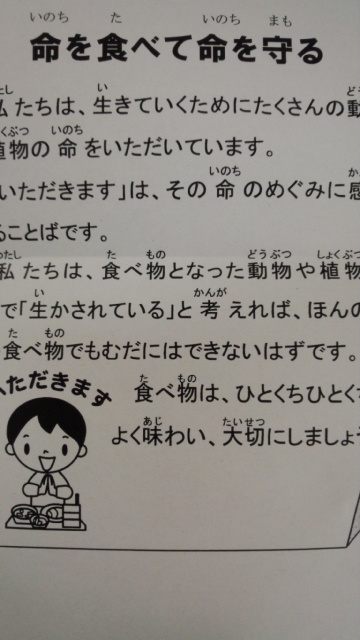 命を食べて命を守る
私たちは、生きていくためにたくさんの動
植物の命をいただいています。
いただきます」は、その命のめぐみに感
ることばです。
私たちは、食べ物となった動物や植物
で「生かされている」と考えれば、ほんの
食べ物でもむだにはできないはずです。
いただきます
食べ物は、ひとくちひとく
よく味わい、大切にしましょう